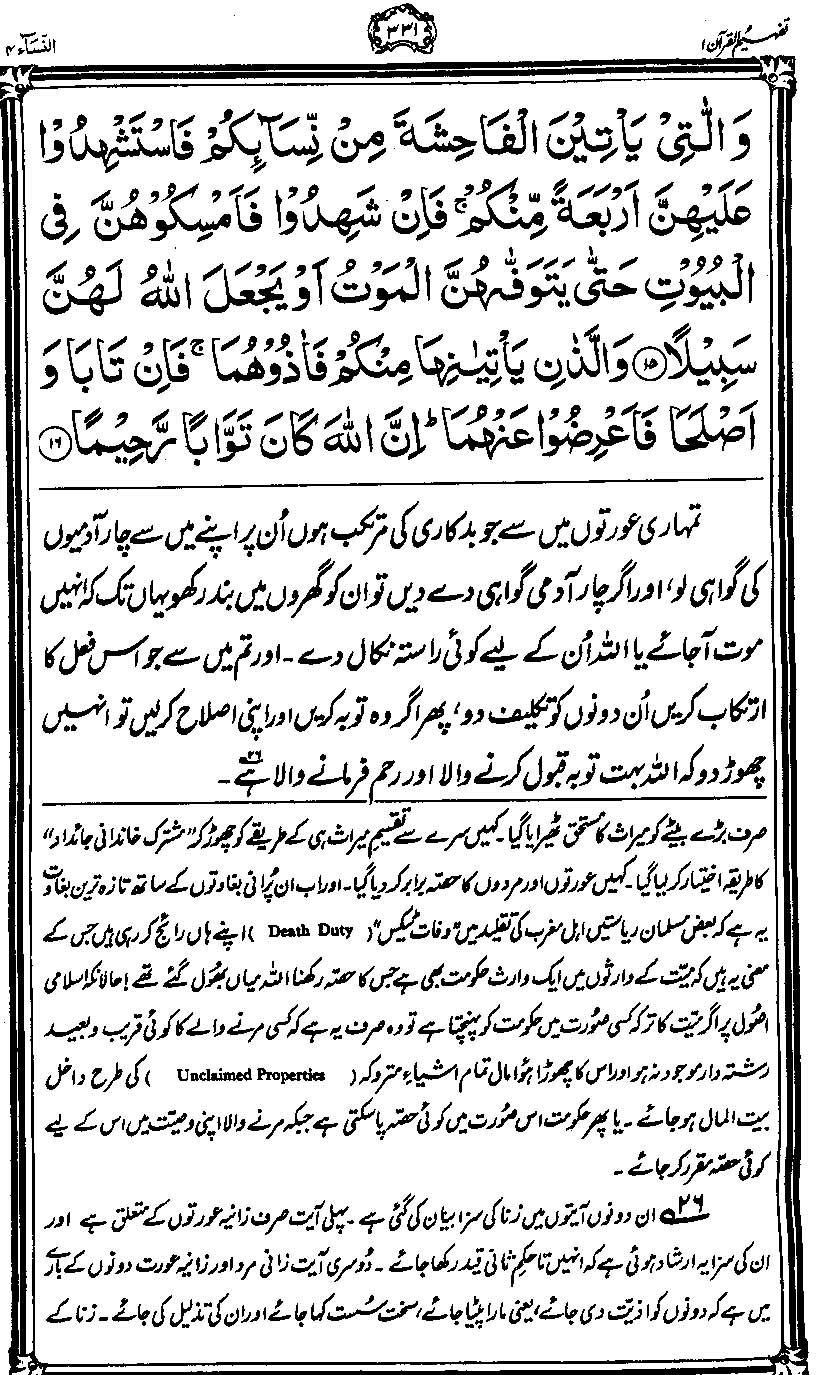 تفہیم القرآن ۱
۳۳۱
النساء ۴
وَالّٰتِیْ یَاْتِیْنَ الْفَاحِشَةَ مِنْ نِّسَآئِکُمْ فَاسْتَشْهِدُوْا
عَلَیْهِنَّ اَرْبَعَةً مِّنْکُمْ ۚ فَاِنْ شَهِدُوْا فَاَمْسِکُوْهُنَّ فِی
الْبُیُوْتِ حَتّٰی یَتَوَفّٰهُنَّ الْمَوْتُ اَوْ یَجْعَلَ اللّٰهُ لَهُنَّ
سَبِیْلًا ۝۱۵ وَالَّذٰنِ یَاْتِیٰنِهَا مِنْکُمْ فَاٰذُوْهُمَا ۚ فَاِنْ تَابَا وَ
اَصْلَحَا فَاَعْرِضُوْا عَنْهُمَا ؕ اِنَّ اللّٰهَ کَانَ تَوَّابًا رَّحِیْمًا ۝۱۶
تمہاری عورتوں میں سے جو بدکاری کی مرتکب ہوں اُن پر اپنے میں سے چار آدمیوں
کی گواہی لو، اور اگر چار آدمی گواہی دے دیں تو ان کو گھروں میں بند رکھو یہاں تک کہ انہیں
موت آجائے یا اللہ اُن کے لیے کوئی راستہ نکال دے۔ اور تم میں سے جو اس فعل کا
ارتکاب کریں اُن دونوں کو تکلیف دو، پھر اگر وہ توبہ کریں اور اپنی اصلاح کرلیں تو انہیں
چھوڑ دو کہ اللہ بہت توبہ قبول کرنے والا اور رحم فرمانے والا ہے۲۶۔
صرف بڑے بیٹے کو میراث کا مستحق ٹھیرایا گیا۔ کہیں سرے سے تقسیم میراث ہی کے طریقے کو چھوڑ کر "مشترک خاندانی جائداد"
کا طریقہ اختیار کر لیا گیا۔ کہیں عورتوں اور مردوں کا حصّہ برابر کر دیا گیا۔ اور اب ان پُرانی بغاوتوں کے ساتھ تازہ ترین بغاوت
یہ ہے کہ بعض مسلمان ریاستیں اہل مغرب کی تقلید میں "وفات ٹیکس" (Death Duty) اپنے ہاں رائج کر رہی ہیں جس کے
معنی یہ ہیں کہ میّت کے وارثوں میں ایک وارث حکومت بھی ہے جس کا حصّہ رکھنا اللہ میاں بھُول گئے تھے! حالانکہ اسلامی
اصُول پر اگر میّت کا ترکہ کسی صُورت میں حکومت کو پہنچتا ہے تو وہ صرف یہ ہے کہ کسی مرنے والے کا کوئی قریب و بعید
رشتہ دار موجود نہ ہو اور اس کا چھوڑا ہُوا مال تمام اشیاءِ متروکہ (Unclaimed Properties) کی طرح داخل
بیت المال ہو جائے۔ یا پھر حکومت اس صُورت میں کوئی حصّہ پا سکتی ہے جبکہ مرنے والا اپنی وصیّت میں اس کے لیے
کوئی حصّہ مقرر کر جائے۔
۲۶ ان دونوں آیتوں میں زنا کی سزا بیان کی گئی ہے۔ پہلی آیت صرف زانیہ عورتوں کے متعلق ہے اور
ان کی سزا یہ ارشاد ہوئی ہے کہ انہیں تا حکمِ ثانی قید رکھا جائے۔ دُوسری آیت زانی مرد اور زانیہ عورت دونوں کے بارے
میں ہے کہ دونوں کو اذیّت دی جائے، یعنی مارا پیٹا جائے، سخت سُست کہا جائے اور ان کی تذلیل کی جائے۔ زنا کے